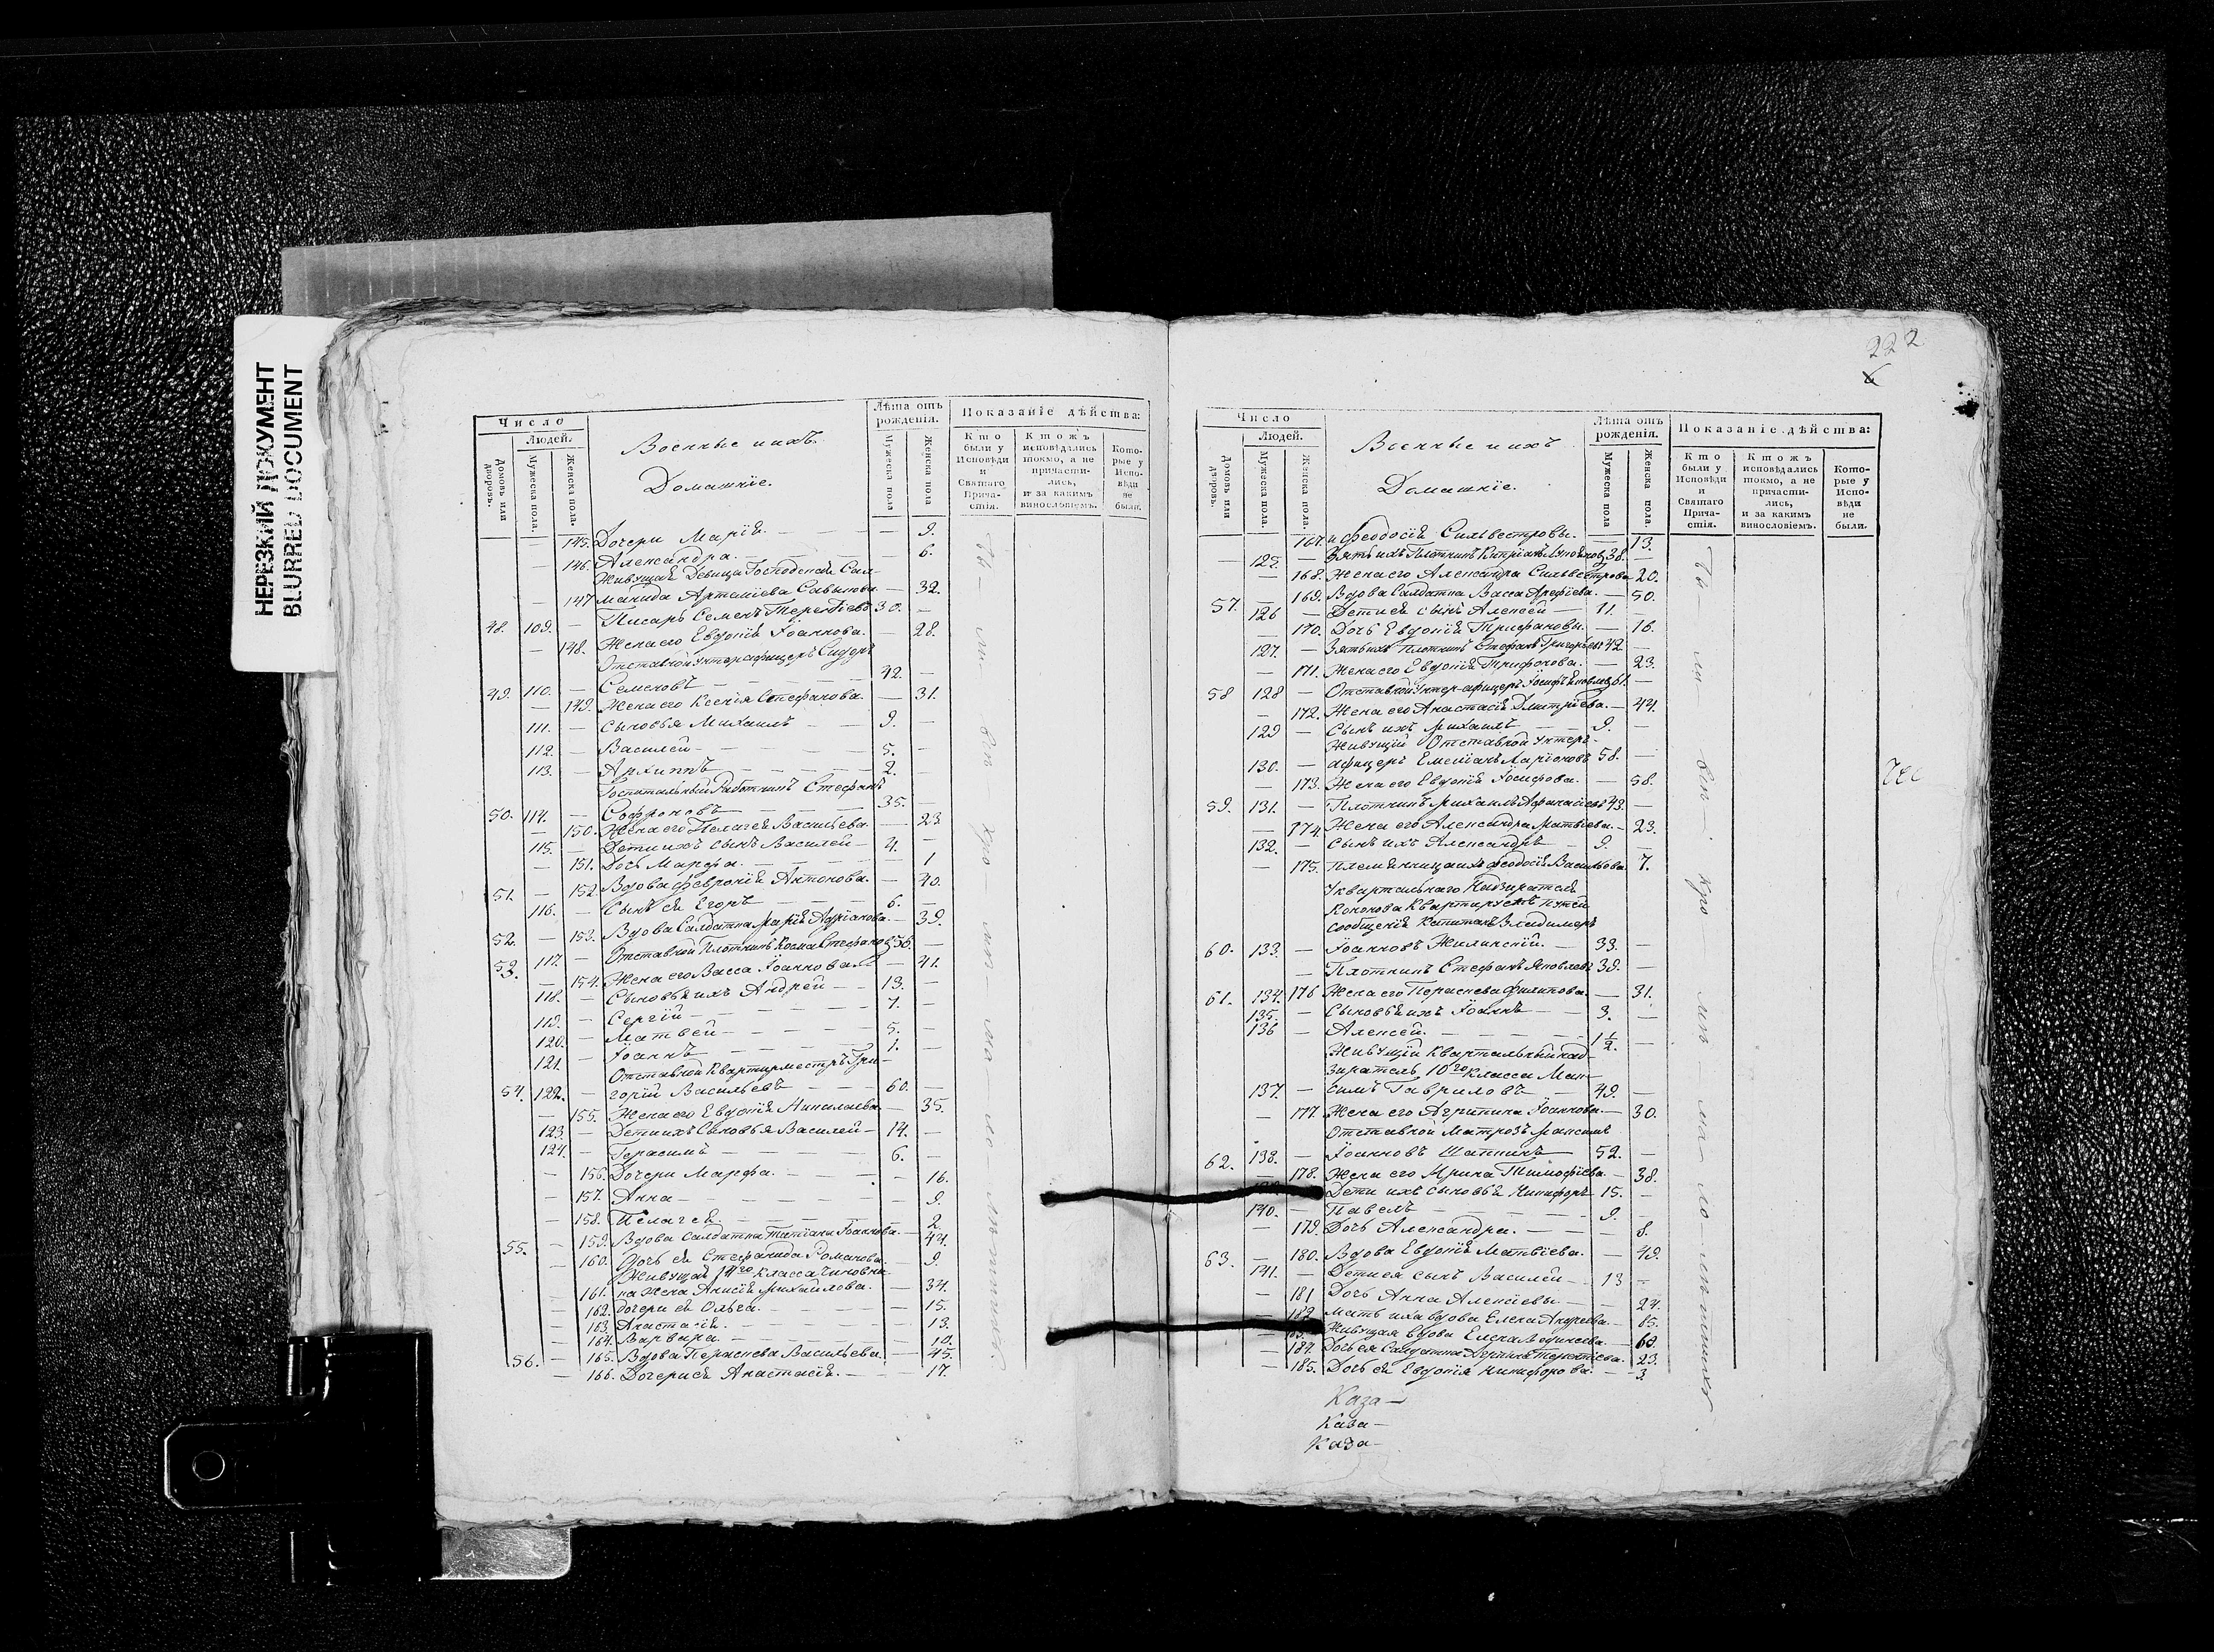 НЕРЕЗКИЙ ДОКУМЕНТ
BLURRED DOCUMENT
Число
Людей.
Домовъ или дворовъ.
Мужеска пола.
Женска пола.
Военные и ихъ
Домашніе.
Лѣта отъ рожденія.
Мужеска пола
Женска пола
Показаніе дѣйства:
Кто были у Исповѣди и Святаго Причастія.
Ктожъ исповѣдались токмо, а не причастились, и за какимъ винословіемъ.
Которые у Исповѣди не были.
— 145. Дочери Марія. — — 9.
— 146. Александра. — — 6.
Живущая Девица Господская Сал-
— 147 манида Артеміева Савинова — 32.
48. 109. — Писарь Семенъ Терентіевъ 30. —
— 148. Жена его Евдокія Іоаннова. — 28.
Отставной Унтерофицеръ Сидоръ
49. 110. — Семеновъ — 42. —
— 149. Жена его Ксенія Стефанова. — 31.
111. — Сыновья Михаилъ — 9. —
112. — Василей — 5. —
113. — Архиппъ — 2. —
Госпитальный Работникъ Стефанъ
50. 114. — Софроновъ — 35. —
— 150. Жена его Пелагея Васильева. — 23
115. — Дети ихъ сынъ Василей — 4. —
— 151. Дочь Марфа. — — 1
51. — 152. Вдова Февронія Антонова. — 40.
116. — Сынъ ея Егоръ — 6. —
52. — 153. Вдова Салдатка Марія Адріанова — 39.
53. 117. — Отставной Плотникъ Косма Стефановъ 56. —
— 154. Жена его Васса Іоаннова — 41.
118. — Сыновья ихъ Андрей — 13. —
119. — Сергій — 7. —
120. — Матвей — 5. —
121. — Іоаннъ — 1. —
Отставной Квартирместръ Гри-
54. 122. — горій Васильевъ — 60. —
— 155. Жена его Евдокія Николаева — 35.
123. — Дети ихъ Сыновья Василей — 14. —
124. — Герасимъ — 6. —
— 156. Дочери Марфа. — — 16.
— 157. Анна — — 9.
— 158. Пелагея — — 2.
55. — 159. Вдова Салдатка Татіана Іоаннова. — 44.
— 160. Дочь ея Стефанида Романова — 9.
Живущая 14го класса Чиновни-
— 161. ка Жена Анисія Михайлова. — 34.
— 162. Дочери ея Ольга. — — 15.
— 163. Анастасія. — — 13.
— 164. Варвара. — — 10.
56. — 165. Вдова Параскева Васильева. — 45.
— 166. Дочери ея Анастасія. — — 17.
222
6
Число
Людей.
Домовъ или дворовъ.
Мужеска пола.
Женска пола.
Военные и ихъ
Домашніе.
Лѣта отъ рожденія.
Мужеска пола
Женска пола.
Показаніе дѣйства:
Кто были у Исповѣди и Святаго Причастія.
Ктожъ исповѣдались токмо, а не причастились, и за какимъ винословіемъ.
Которые у Исповѣди не были.
— 167. и Феодосія Сильвестровы. — 13.
125. — Зять ихъ Плотникъ Кипріанъ 38. —
— 168. Жена его Александра Сильвестрова 20.
57. — 169. Вдова Салдатка Васса Арефіева. — 50.
126 — Дети ея сынъ Алексей — 11. —
— 170. Дочь Евдокія Трифановы. — 16.
127. — Зять ихъ Плотникъ Стефанъ Григорьевъ 42. —
— 171. Жена его Евдокія Трифонова. — 23.
58 128 — Отставной Унтер-офицеръ Іосифъ Яковлевъ 61. —
— 172. Жена его Анастасія Дмитріева. — 44.
129 — Сынъ ихъ Михаилъ — 9. —
Живущій Отставной Унтеръ-
130. — офицеръ Емеліанъ Ларіоновъ 58. —
— 173. Жена его Евдокія Іосифова. — 58.
59. 131. — Плотникъ Михаилъ Афанасіевъ 43. —
— 174. Жена его Александра Матвіева. — 23.
132. — Сынъ ихъ Александръ — 9. —
— 175. Племянница ихъ Феодосія Васильева 7.
У квартальнаго Надзирателя
Кононова Квартируетъ путей
сообщенія Капитанъ Владимеръ
60. 133. — Іоанновъ Жилинскій. — 33. —
— Плотникъ Стефанъ Яковлевъ 39. —
61. 134. 176 Жена его Параскева Филипова. — 31.
135. — Сыновья ихъ Іоаннъ — 3. —
136 — Алексей. — 1 1/2. —
Живущій Квартальный над-
зиратель 10го класса Мак-
137. — симъ Гавриловъ — 49. —
— 177. Жена его Агрипина Іоаннова. — 30.
Отставной Матрозъ Максимъ
62. 138. — Іоанновъ Шапкинъ 52. —
— 178. Жена его Ирина Тимофіева. — 38.
Дети ихъ сыновья Никифоръ 15. —
140. — Павелъ — 9. —
— 179. Дочь Александра. — — 8.
63. — 180. Вдова Евдокія Матвіева. — 49.
141. — Дети ея сынъ Василей — 13 —
— 181 Дочь Анна Алексіевы. — 24.
— 182. Мать ихъ вдова Елена Андреева — 85.
Живущая вдова Елена — 60.
— 184. Дочь ея Салдатка Терентіева. 23.
— 185. Дочь ея Евдокія Никифорова. — 3.
Каза-
Каза-
Каза-